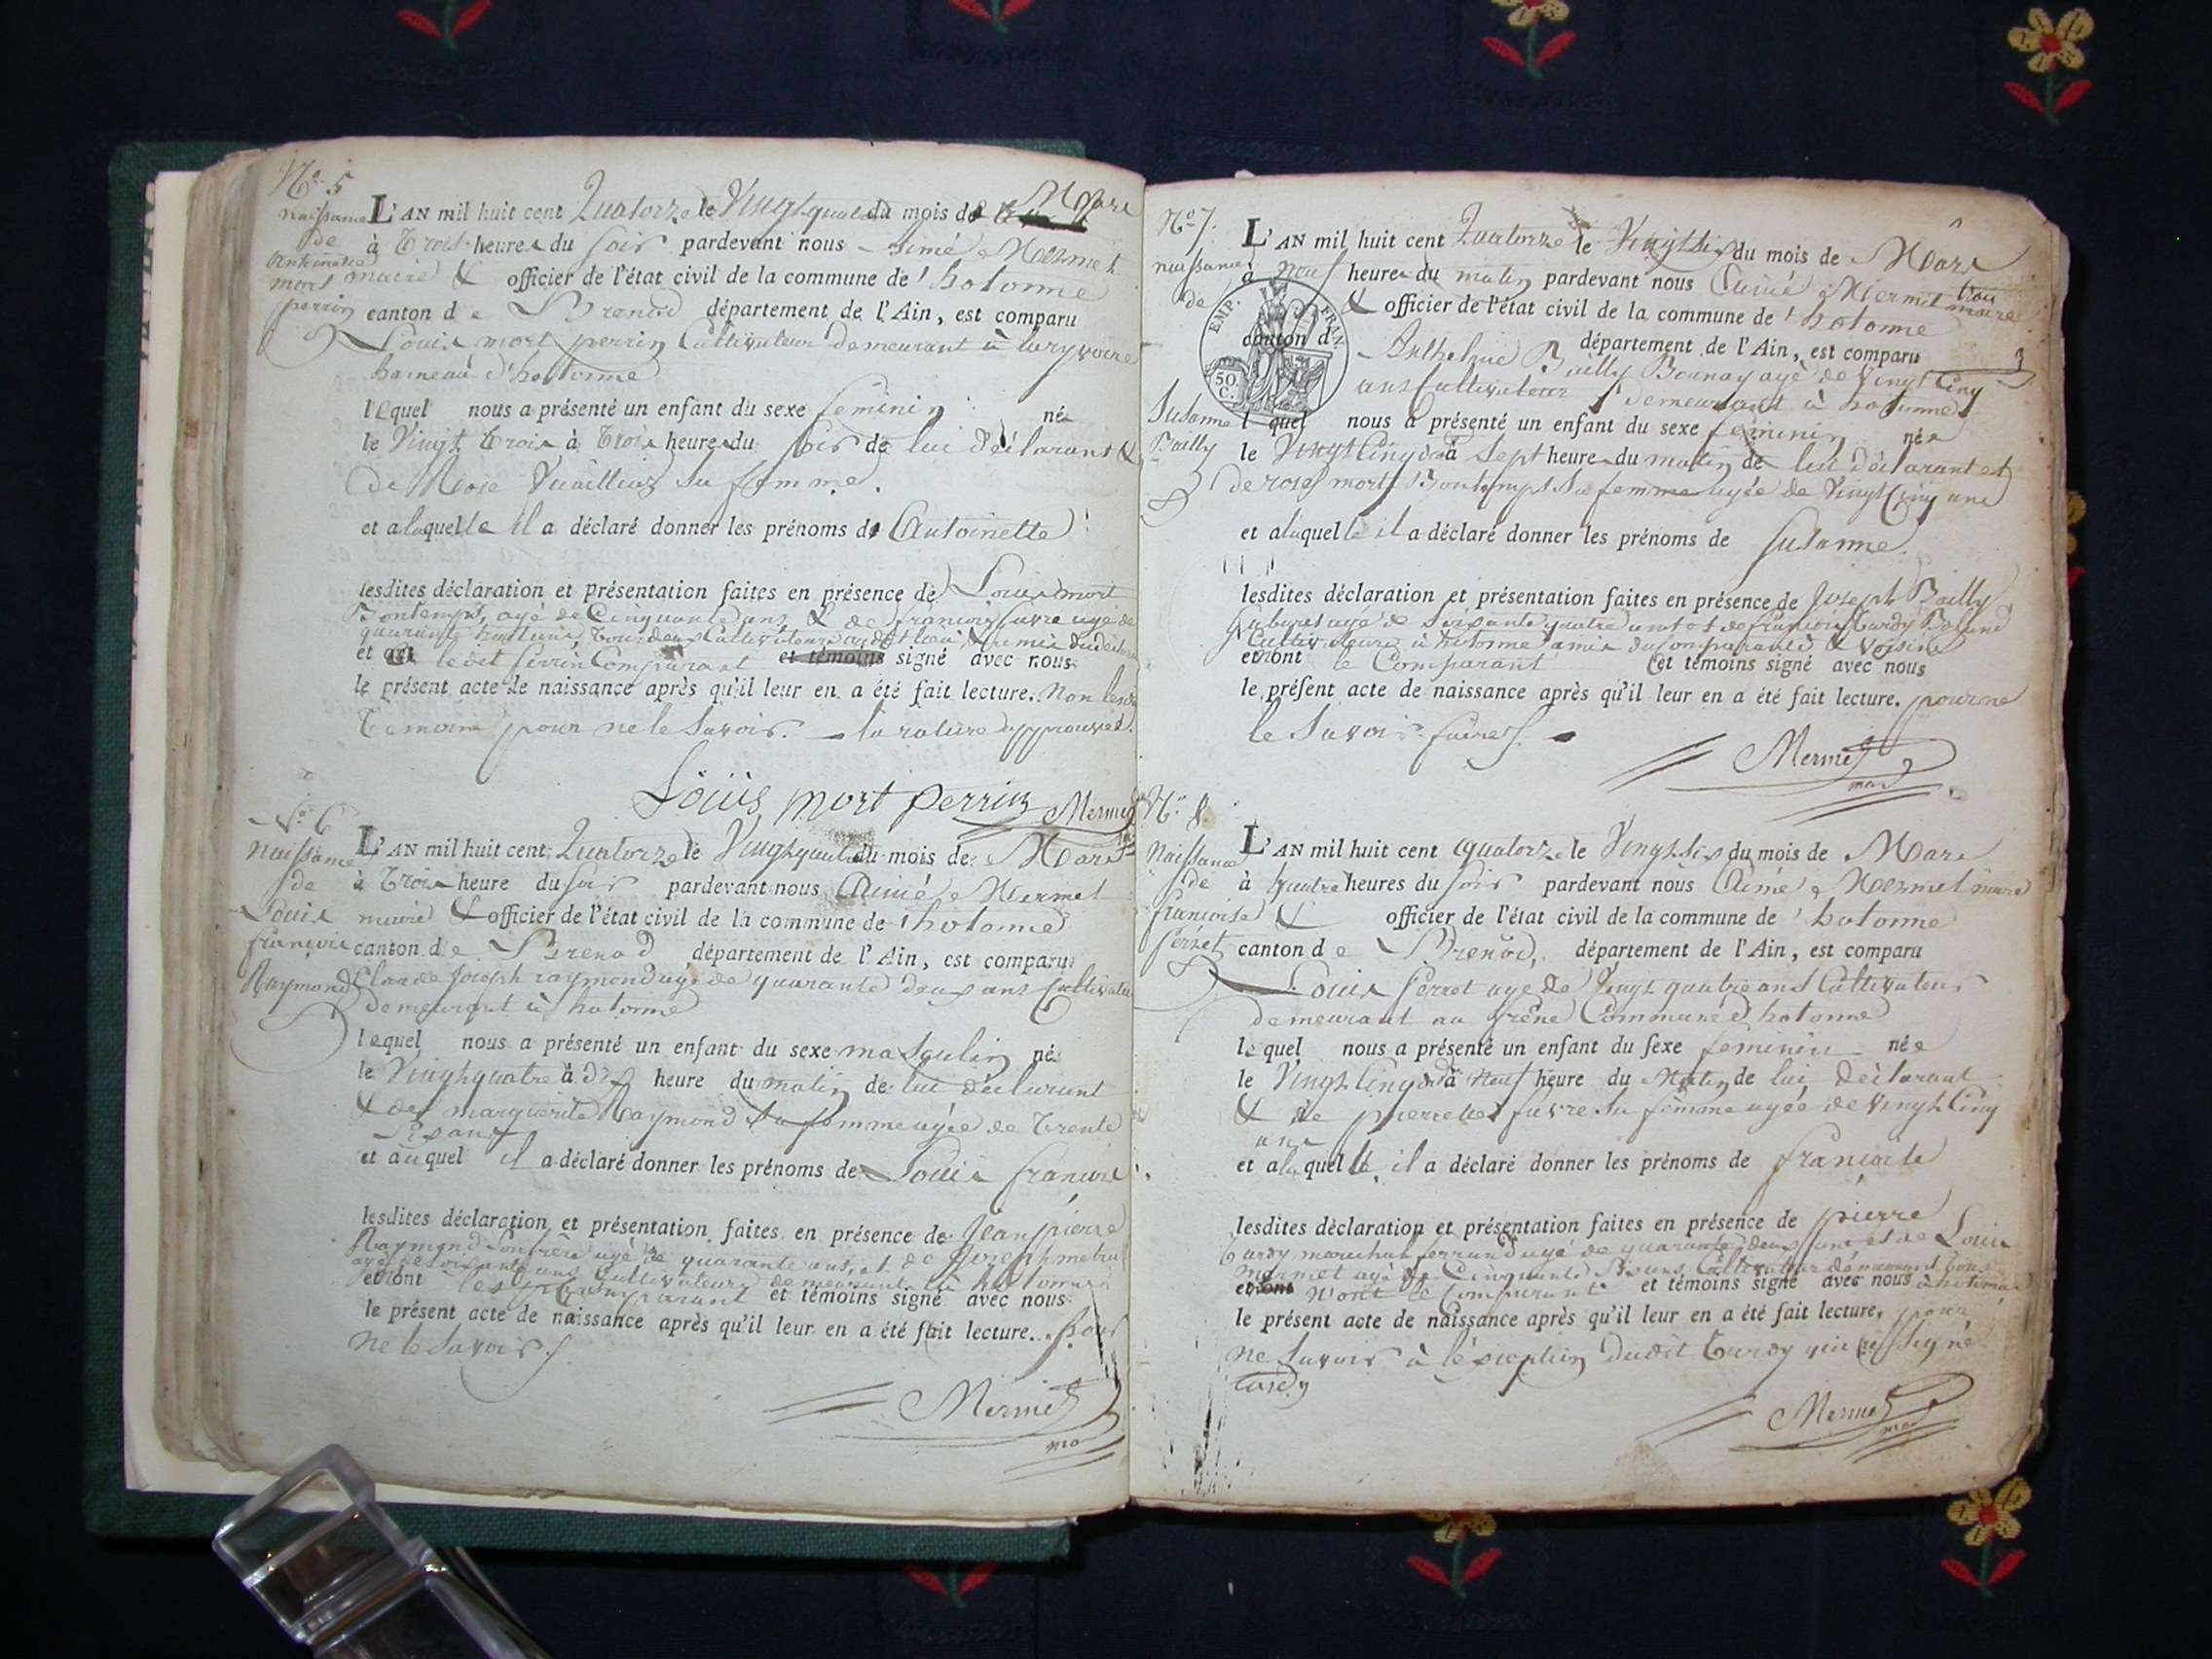 No. 5
naissance
de
antoinette
mort
perrin
L'AN mil huit cent Quatorze le Vingt quatre du mois de Mars
à Trois heures du soir pardevant nous aimé Mermet
maire & officier de l'état civil de la commune de hotonne
canton de Brenod département de l'Ain, est comparu
Louis mort perrin Cultivateur demeurant à
hameau d'hotonne
lequel nous a présenté un enfant du sexe feminin née
le Vingt Trois à Trois heures du soir de lui déclarant &
de Rose sa femme.
et a laquelle il a déclaré donner les prénoms de Antoinette
lesdites déclaration et présentation faites en présence de Louis mort
Bontemps, agé de Cinquante ans & de francois favre agé de
quarante huit ans, Tous deux Cultivateurs audit lieu & amis dudit
et ledit perrin Comparant et témoins signé avec nous
le présent acte de naissance après qu'il leur en a été fait lecture. Non les
Temoins pour ne le savoir. la rature approuvée
Louis mort perrin Mermet
No. 6
Naissance
de
Louis
francois
Raymond
L'AN mil huit cent Quatorze le Vingt quatre du mois de Mars
à Trois heure du soir pardevant nous Aimé Mermet
maire & officier de l'état civil de la commune de hotonne
canton de Brenod département de l'Ain, est comparu
Claude Joseph raymond agé de quarante deux ans Cultivateur
demeurant à hotonne
lequel nous a présenté un enfant du sexe masculin né
le Vingt quatre à dix heure du matin de lui déclarant
& de marguerite Raymond sa femme agée de Trente
Six ans
et auquel il a déclaré donner les prénoms de Louis francois
lesdites déclaration et présentation faites en présence de Jean pierre
Raymond son frère agé de quarante ans, et de Joseph
agé de soixante ans Cultivateurs demeurant à hotonne
et n'ont les Comparant et témoins signé avec nous
le présent acte de naissance après qu'il leur en a été fait lecture. pour
ne le savoir
Mermet
No. 7.
naissance
de
Susanne
Bailly
EMP. FRAN.
50. C.
L'AN mil huit cent Quatorze le Vingt Six du mois de Mars
à neuf heures du matin pardevant nous Aimé Mermet
maire
& officier de l'état civil de la commune de hotonne
canton d département de l'Ain, est comparu
Anthelme Bailly Bounay agé de Vingt Cinq
ans Cultivateur demeurant à hotonne
lequel nous a présenté un enfant du sexe feminin née
le Vingt Cinq à Sept heures du matin de lui déclarant et
de rose mort Bontemps sa femme agée de Vingt Cinq ans
et a laquelle il a déclaré donner les prénoms de Susanne
lesdites déclaration et présentation faites en présence de Joseph Bailly
agé de soixante quatre ans et de francois Tardy
Cultivateurs à hotonne amis du Comparant & voisins
et n'ont le Comparant et témoins signé avec nous
le présent acte de naissance après qu'il leur en a été fait lecture. pour ne
le Savoir faire
Mermet
No. 8.
Naissance
de
francoise
perret
L'AN mil huit cent quatorze le Vingt Six du mois de Mars
à quatre heures du soir pardevant nous Aimé Mermet maire
& officier de l'état civil de la commune de hotonne
canton de Brenod, département de l'Ain, est comparu
Louis perret agé de Vingt quatre ans Cultivateur
demeurant au frêne Commune d'hotonne
lequel nous a présenté un enfant du sexe feminin née
le Vingt Cinq à Neuf heure du Matin de lui déclarant
& de pierrette favre sa femme agée de vingt Cinq
ans
et a laquelle il a déclaré donner les prénoms de francoise
lesdites déclaration et présentation faites en présence de pierre
Tardy marechal ferrand agé de quarante deux ans et de Louis
Mermet agé de Cinquante ans, Cultivateur demeurant tous
n'ont le Comparant et témoins signé avec nous à hotonne
le présent acte de naissance après qu'il leur en a été fait lecture, pour
ne Savoir à l'éxception dudit Tardy qui a signé
tardy
Mermet